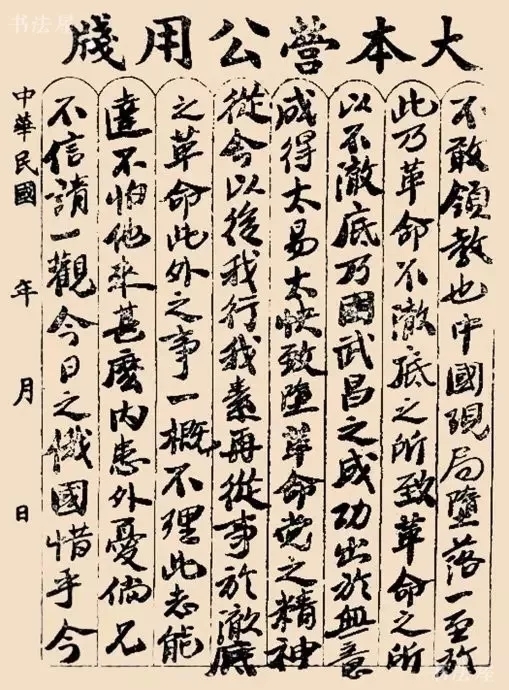 书法屋
大本營公用牋
不敢領教也中國現局墮落一至於
此乃革命不澈底之所致革命之所
以不澈底乃因武昌之成功出於無意
成得太易太快致墮革命党之精神
從今以後我行我素再從事於澈底
之革命此外之事一概不理此志能
達不怕他來甚麽內患外憂倘兄
不信請一觀今日之俄國惜乎今
中華民國 年 月 日
书法屋